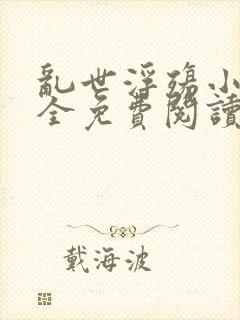 亂世浮殤小
全免費閱讀
戴海波